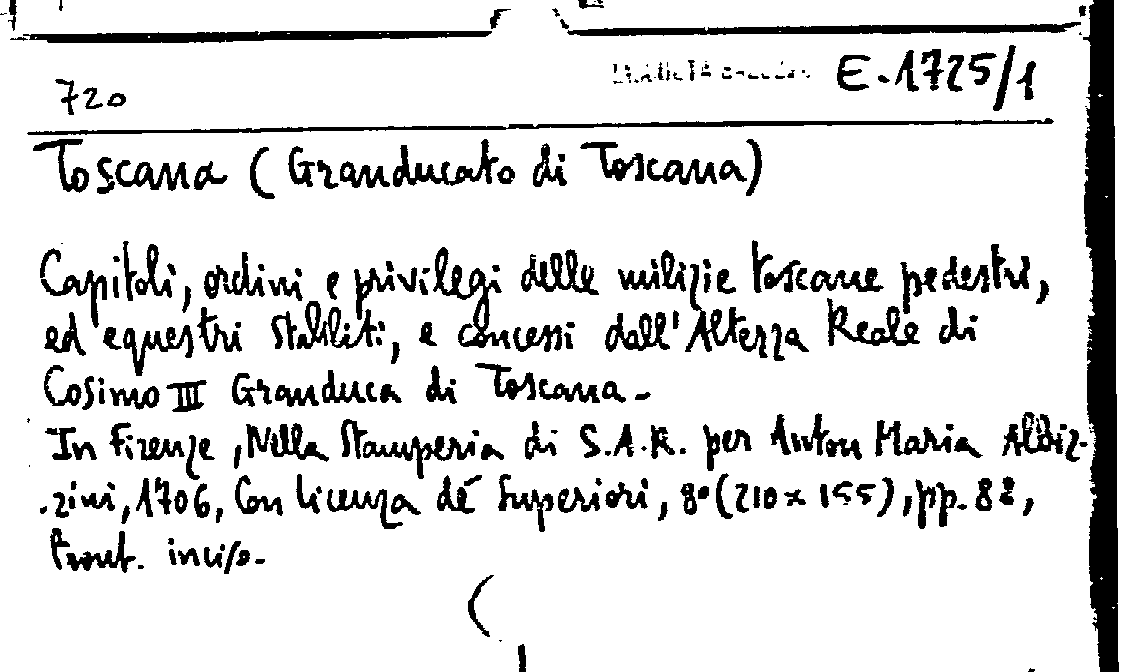 E.1725/1
720
Toscana (Granducato di Toscana)
Capitoli, ordini e privilegi delle milizie toscane pedestri,
ed equestri stabiliti, e concessi dall'Altezza Reale di
Cosimo III Granduca di Toscana.
In Firenze, Nella Stamperia di S.A.R. per Anton Maria Albiz-
.zini, 1706, Con licenza dé Superiori, 8° (210x155), pp. 82,
front. inciso.